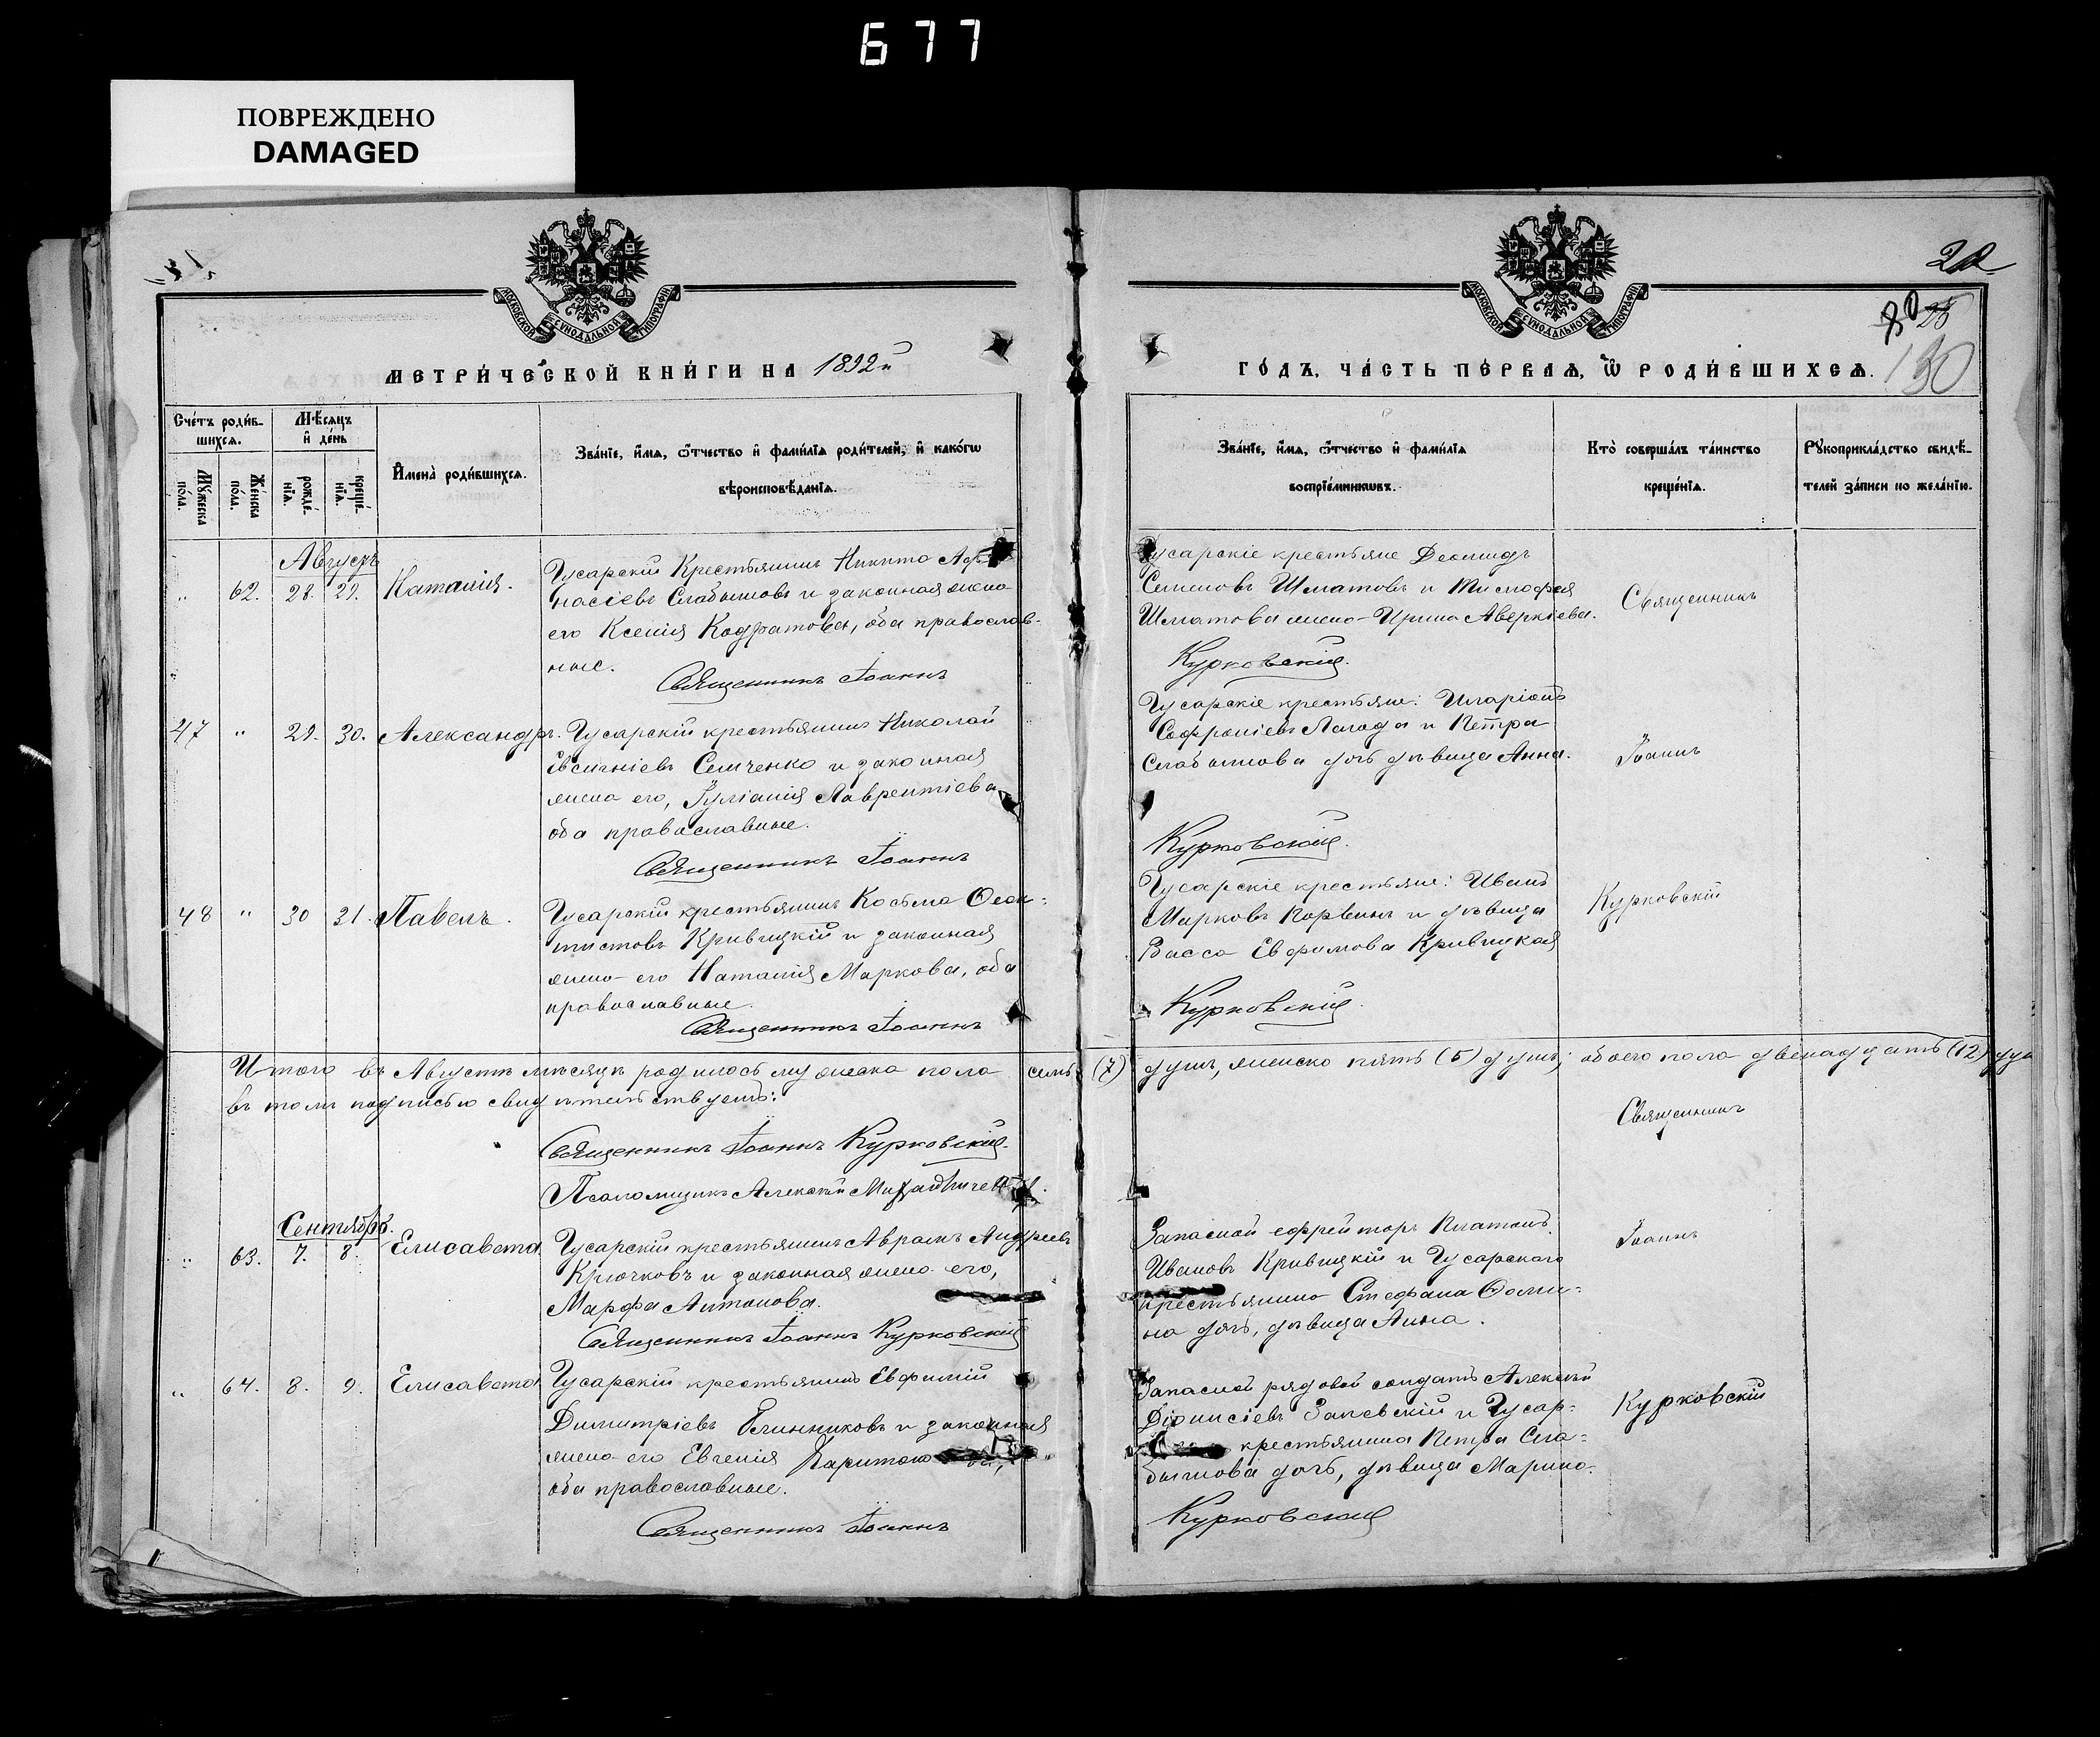 677
ПОВРЕЖДЕНО
DAMAGED
МОСКОВСКОЙ СУНОДАЛЬНОЙ ТИПОГРАФІИ
МОСКОВСКОЙ СУНОДАЛЬНОЙ ТИПОГРАФІИ
80 25
130
МЕТРИ́ЧЕСКОЙ КНИ́ГИ НА 1892й
ГО́ДЪ, ЧА́СТЬ ПЕ́РВАѦ, Ѿ РОДИ́ВШИХСѦ.
Сче́тъ роди́в-
шихсѧ.
Мѣ́сѧцъ
и҆ де́нь
Мꙋ́жеска по́ла.
Же́нска по́ла.
рожде́-нїѧ.
креще́-нїѧ.
И҆мена̀ роди́вшихсѧ.
Зва́нїе, и҆́мѧ, ѻ҆́тчество и҆ фами́лїѧ роди́телей, и҆ како́гѡ
вѣроисповѣ́данїѧ.
Зва́нїе, и҆́мѧ, ѻ҆́тчество и҆ фами́лїѧ
воспрїе́мникѡвъ.
Кто̀ соверша́лъ та́инство
креще́нїѧ.
Рꙋкоприкла́дство свидѣ́-
телей за́писи по жела́нїю.
Августъ
" 62. 28. 29. Наталія.
Гусарскій Крестьянинъ Никита Афа-
насіевъ Слабышовъ и законная жена
его Ксенія Кодратова, оба православ-
ные.
Священникъ Іоаннъ
Гусарскіе крестьяне Деомидъ
Семеновъ Шматовъ и Тимофея
Шматова жена Ирина Аверкіева.
Курковскій.
Священникъ
47 " 29. 30. Александръ.
Гусарскій крестьянинъ Николай
Евсигніевъ Семченко и законная
жена его, Іуліанія Лаврентіева
оба православные.
Священникъ Іоаннъ
Гусарскіе крестьяне: Иларіонъ
Софроніевъ Лагода и Петра
Слабышова дочь дѣвица Анна.
Курковскій.
Іоаннъ
48 " 30 31. Павелъ.
Гусарскій крестьянинъ Косьма Феок-
тистовъ Кривицкій и законная
жена его Наталія Маркова, оба
православные.
Священникъ Іоаннъ
Гусарскіе крестьяне: Иванъ
Марковъ и дѣвица
Васса Евфимова Кривицкая
Курковскій.
Курковскій
Итого въ Августѣ мѣсяцѣ родилось мужеска пола семь (7) душъ, женска пять (5) душъ; обоего пола двѣнадцать (12) душ
въ томъ подписью свидѣтельствуемъ:
Священникъ Іоаннъ Курковскій.
Псаломщикъ Алексѣй
Священникъ
Сентябрь.
" 63. 7. 8. Елисавета
Гусарскій крестьянинъ Аврамъ Андреевъ
Крючковъ и законная жена его,
Марфа Антонова.
Священникъ Іоаннъ Курковскій
Запасной ефрейторъ Платонъ
Ивановъ Кривицкій и Гусарскаго
крестьянина Стефана Фоми-
на дочь, дѣвица Анна.
Іоаннъ
" 64. 8. 9. Елисавета
Гусарскій крестьянинъ Евфимій
Димитріевъ и законная
жена его Евгенія
оба православные.
Священникъ Іоаннъ
Запасной рядовой солдатъ Алексѣй
Діонисіевъ и Гусар-
крестьянина Петра Сла-
бышова дочь, дѣвица Марина.
Курковскій
Курковскій